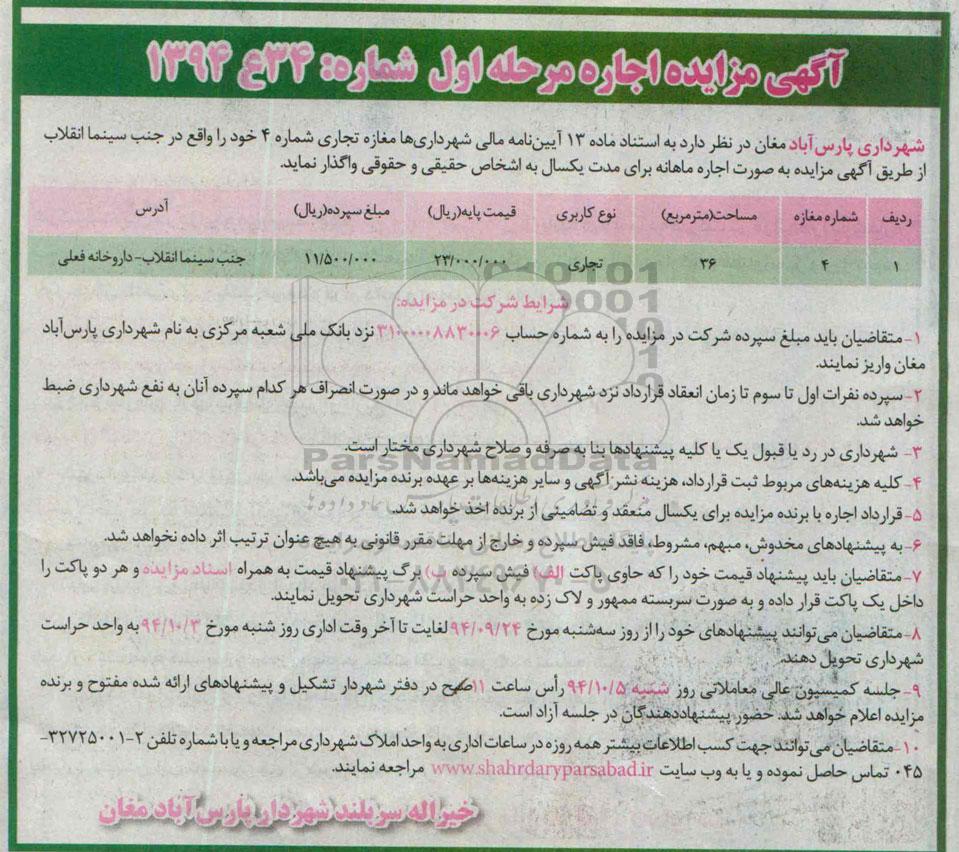 آگهی مزایده اجاره مرحله اول شماره: ۳۴ع ۱۳۹۴
شهرداری پارس‌آباد مغان در نظر دارد به استناد ماده ۱۳ آیین‌نامه مالی شهرداری‌ها مغازه تجاری شماره ۴ خود را واقع در جنب سینما انقلاب
از طریق آگهی مزایده به صورت اجاره ماهانه برای مدت یکسال به اشخاص حقیقی و حقوقی واگذار نماید.
ردیف شماره مغازه مساحت(مترمربع) نوع کاربری قیمت پایه(ریال) مبلغ سپرده(ریال) آدرس
۱ ۴ ۳۶ تجاری ۲۳/۰۰۰/۰۰۰ ۱۱/۵۰۰/۰۰۰ جنب سینما انقلاب- داروخانه فعلی
شرایط شرکت در مزایده:
۱- متقاضیان باید مبلغ سپرده شرکت در مزایده را به شماره حساب ۳۱۰۰۰۰۰۸۸۳۰۰۰۶ نزد بانک ملی شعبه مرکزی به نام شهرداری پارس‌آباد
مغان واریز نمایند.
۲- سپرده نفرات اول تا سوم تا زمان انعقاد قرارداد نزد شهرداری باقی خواهد ماند و در صورت انصراف هر کدام سپرده آنان به نفع شهرداری ضبط
خواهد شد.
۳- شهرداری در رد یا قبول یک یا کلیه پیشنهادها بنا به صرفه و صلاح شهرداری مختار است.
ParsNamadData
۴- کلیه هزینه‌های مربوط ثبت قرارداد، هزینه نشر آگهی و سایر هزینه‌ها بر عهده برنده مزایده می‌باشد.
۵- قرارداد اجاره با برنده مزایده برای یکسال منعقد و تضامینی از برنده اخذ خواهد شد.
۶- به پیشنهادهای مخدوش، مبهم، مشروط، فاقد فیش سپرده و خارج از مهلت مقرر قانونی به هیچ عنوان ترتیب اثر داده نخواهد شد.
۷- متقاضیان باید پیشنهاد قیمت خود را که حاوی پاکت الف) فیش سپرده ب) برگ پیشنهاد قیمت به همراه اسناد مزایده و هر دو پاکت را
داخل یک پاکت قرار داده و به صورت سربسته ممهور و لاک زده به واحد حراست شهرداری تحویل نمایند.
۸- متقاضیان می‌توانند پیشنهادهای خود را از روز سه‌شنبه مورخ ۹۴/۰۹/۲۴ لغایت تا آخر وقت اداری روز شنبه مورخ ۹۴/۱۰/۳ به واحد حراست
شهرداری تحویل دهند.
۹- جلسه کمیسیون عالی معاملاتی روز شنبه ۹۴/۱۰/۵ رأس ساعت ۱۱ صبح در دفتر شهردار تشکیل و پیشنهادهای ارائه شده مفتوح و برنده
مزایده اعلام خواهد شد. حضور پیشنهاددهندگان در جلسه آزاد است.
۱۰- متقاضیان می‌توانند جهت کسب اطلاعات بیشتر همه روزه در ساعات اداری به واحد املاک شهرداری مراجعه و یا با شماره تلفن ۲-۳۲۷۲۵۰۰۱-
۰۴۵ تماس حاصل نموده و یا به وب سایت www.shahrdaryparsabad.ir مراجعه نمایند.
خیراله سربلند شهردار پارس‌آباد مغان